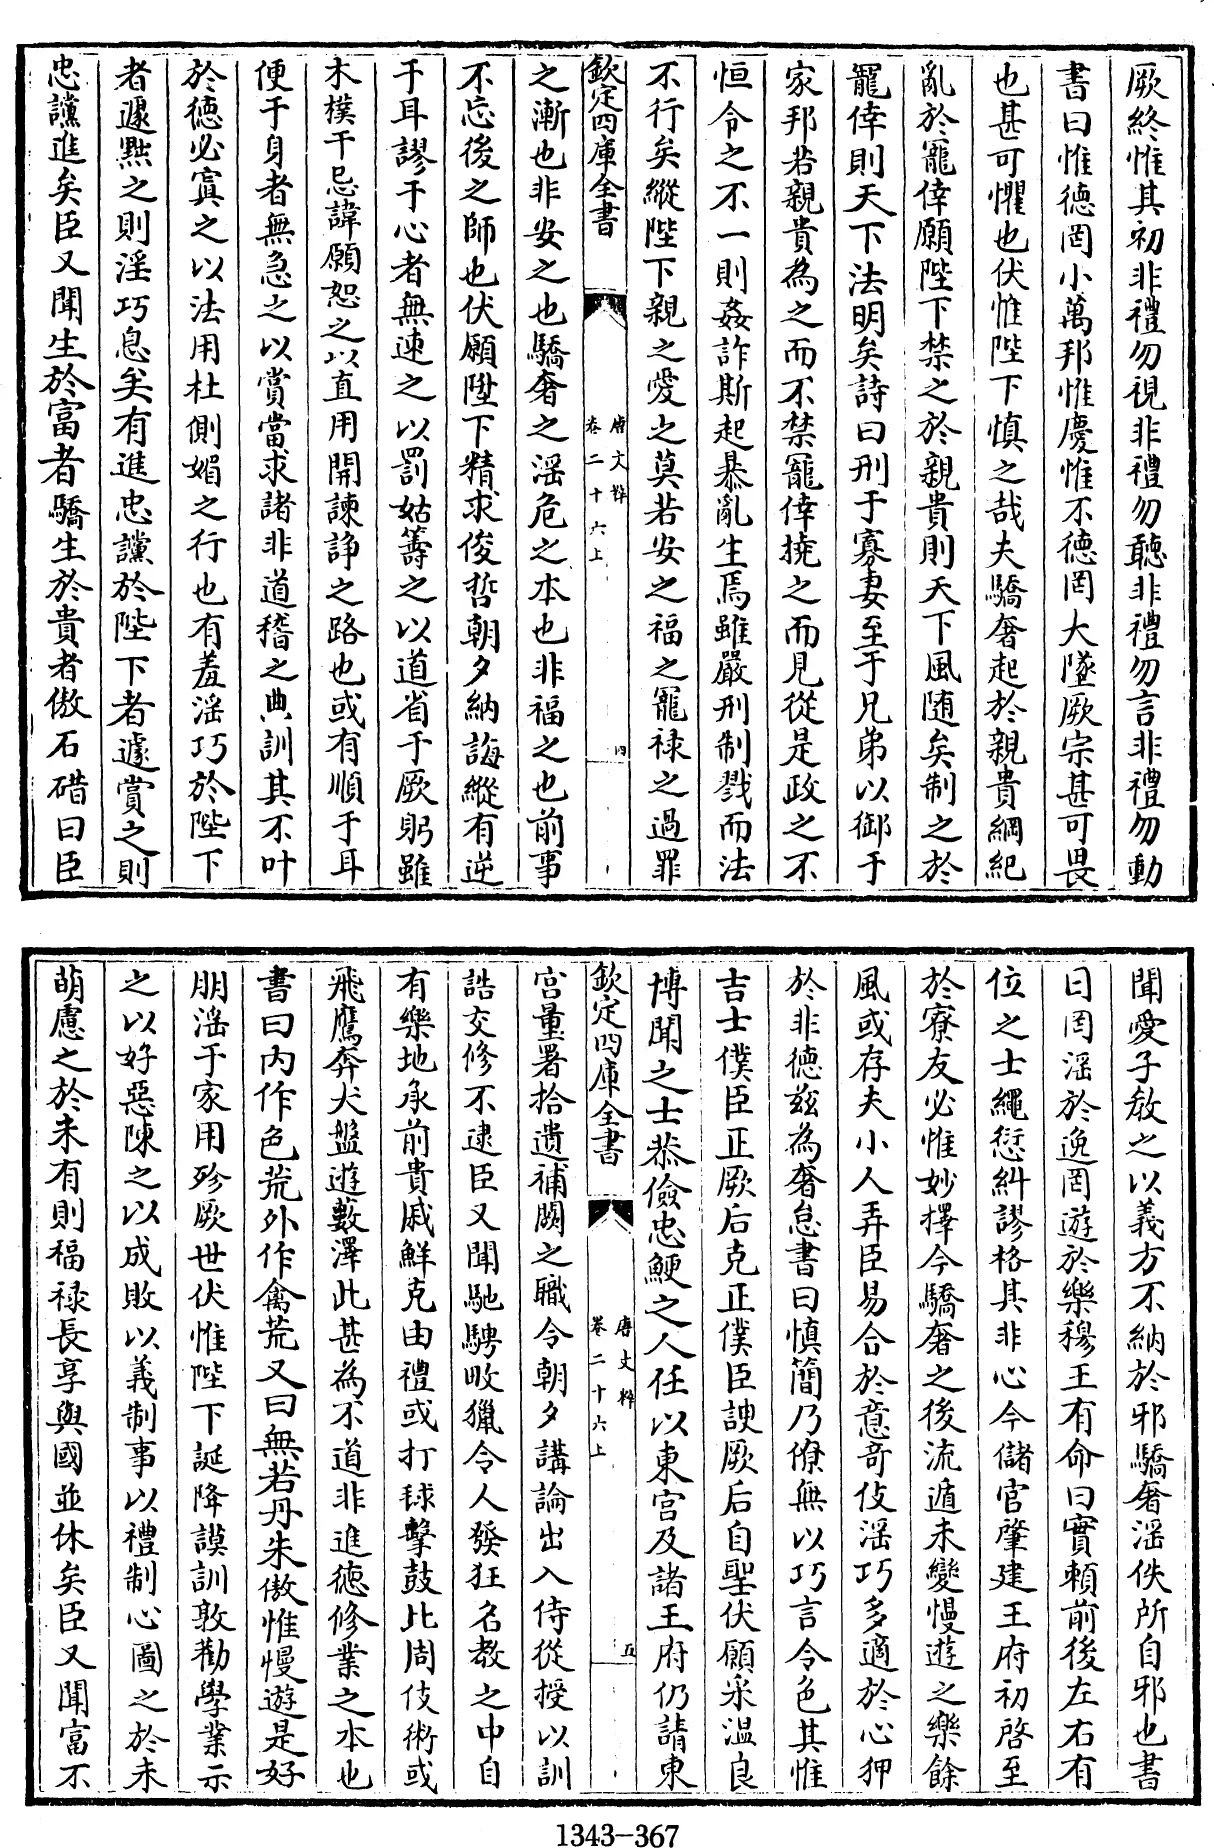 厥終惟其初非禮勿視非禮勿聽非禮勿言非禮勿動
書曰惟德罔小萬邦惟慶惟不德罔大墜厥宗甚可畏
也甚可懼也伏惟陛下慎之哉夫驕奢起於親貴綱紀
亂於寵倖願陛下禁之於親貴則天下風随矣制之於
寵倖則天下法明矣詩曰刑于寡妻至于兄弟以御于
家邦若親貴為之而不禁寵倖撓之而見從是政之不
恒令之不一則姦詐斯起暴亂生焉雖嚴刑制戮而法
不行矣縱陛下親之愛之莫若安之福之寵禄之過罪
欽定四庫全書
唐文粹
卷二十六上
四
之漸也非安之也驕奢之淫危之本也非福之也前事
不忘後之師也伏願陛下精求俊哲朝夕納誨縱有逆
于耳謬于心者無速之以罰姑籌之以道省于厥躬雖
木樸干忌諱願恕之以直用開諫諍之路也或有順于耳
便于身者無急之以賞當求諸非道稽之典訓其不叶
於德必寘之以法用杜側媚之行也有羞淫巧於陛下
者遽黜之則淫巧息矣有進忠讜於陛下者遽賞之則
忠讜進矣臣又聞生於富者驕生於貴者傲石碏曰臣
聞愛子敎之以義方不納於邪驕奢淫佚所自邪也書
曰罔淫於逸罔遊於樂穆王有命曰實頼前後左右有
位之士繩愆糾謬格其非心今儲官肇建王府初啓至
於寮友必惟妙擇今驕奢之後流遁未變慢遊之樂餘
風或存夫小人弄臣易合於意奇伎淫巧多適於心狎
於非德兹為奢怠書曰慎簡乃僚無以巧言令色其惟
吉士僕臣正厥后克正僕臣諛厥后自聖伏願采溫良
博聞之士恭儉忠鯁之人任以東宮及諸王府仍請東
欽定四庫全書
唐文粹
卷二十六上
五
宮量署拾遺補闕之職令朝夕講論出入侍從授以訓
誥交修不逮臣又聞馳騁畋獵令人發狂名教之中自
有樂地承前貴戚鮮克由禮或打毬擊鼓比周伎術或
飛鷹奔犬盤遊藪澤此甚為不道非進德修業之本也
書曰内作色荒外作禽荒又曰無若丹朱傲惟慢遊是好
朋淫于家用殄厥世伏惟陛下誕降謨訓敦勸學業示
之以好惡陳之以成敗以義制事以禮制心圖之於未
萌慮之於未有則福禄長享與國並休矣臣又聞富不
1343-367